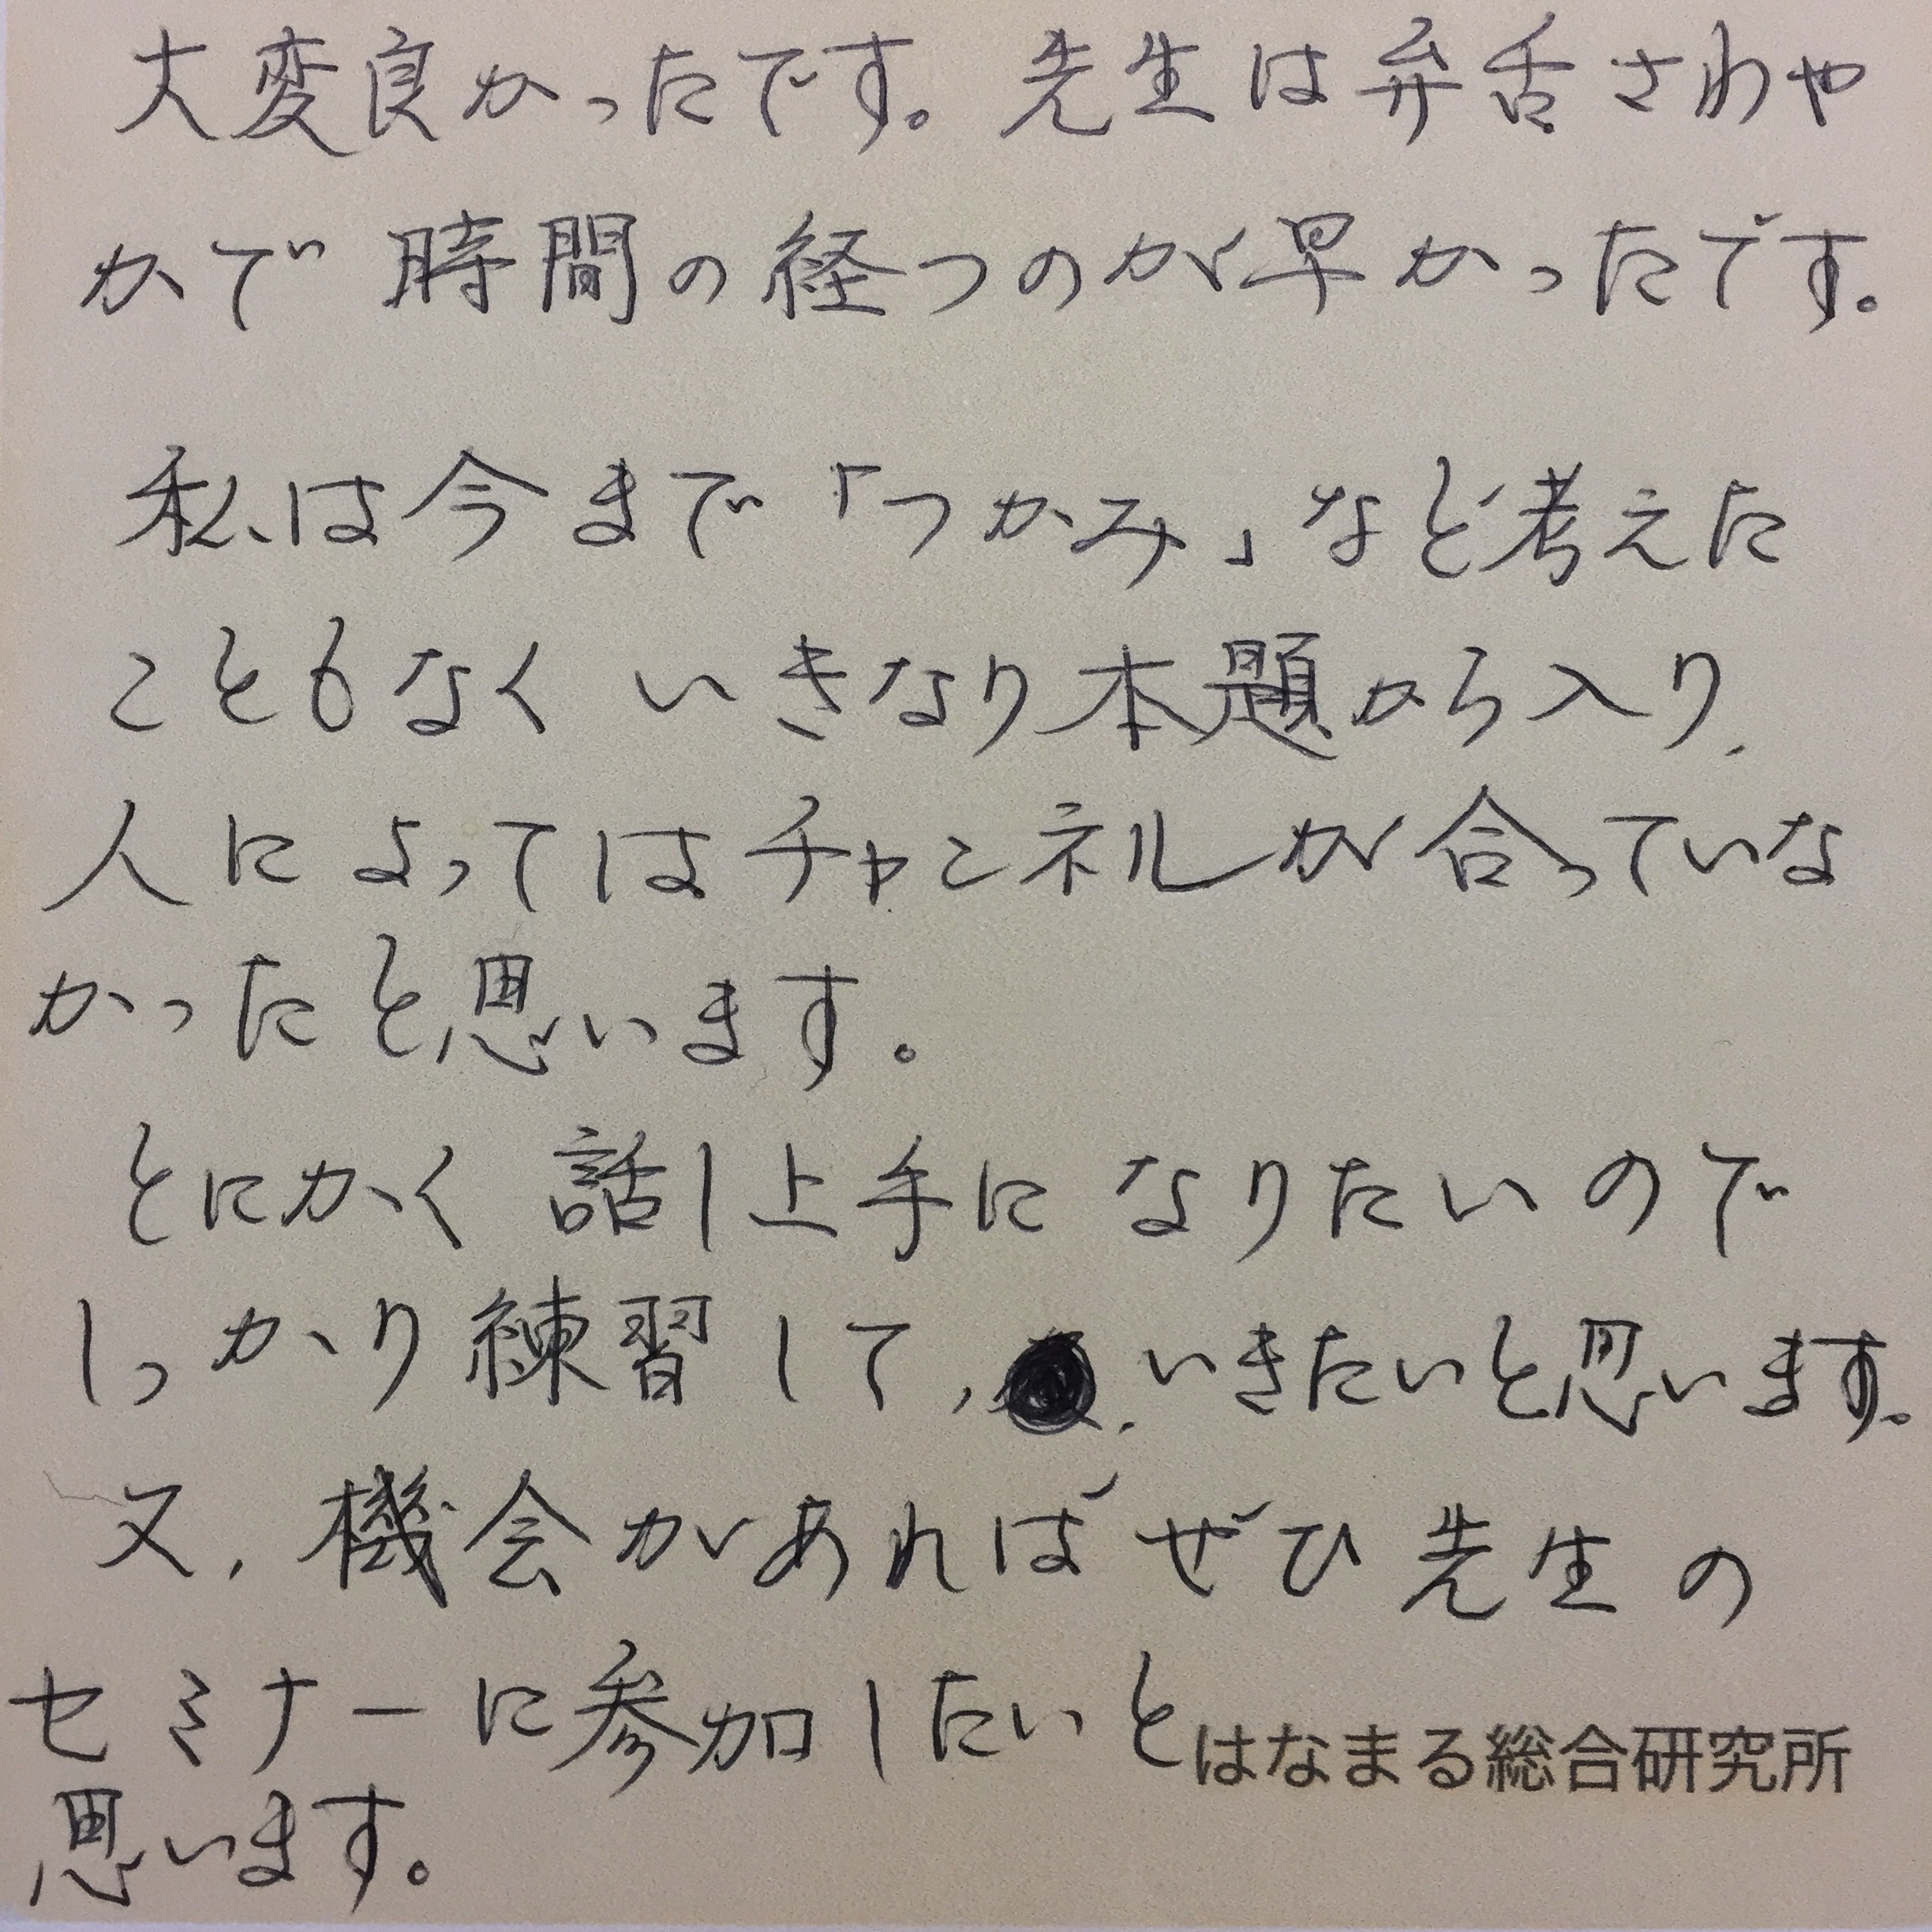 大変良かったです。先生は弁舌さわや
かで時間の経つのが早かったです。
私は今まで「つかみ」など考えた
こともなくいきなり本題から入り、
人によってはチャンネルが合っていな
かったと思います。
とにかく話し上手になりたいので
しっかり練習して、いきたいと思います。
又、機会があればぜひ先生の
セミナーに参加したいと
思います。
はなまる総合研究所